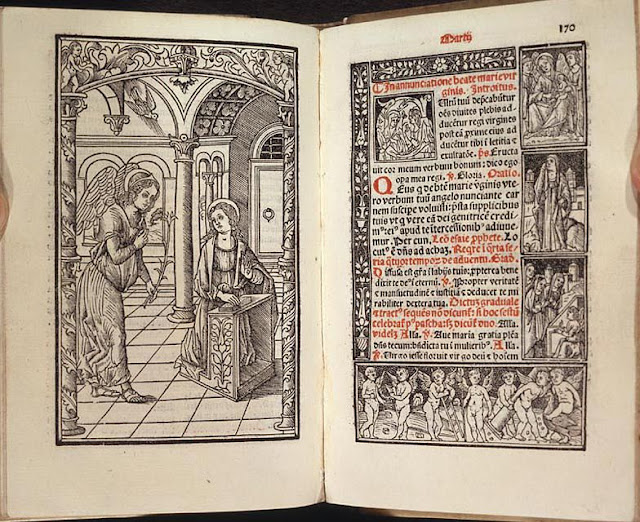 Martij
170
In annunciatione beate marie vir
ginis. Introitus.
Ultū tuū dep̄cabūtur
oēs diuites plebis ad
ducētur regi virgines
post eā proxime eius ad
ducētur tibi ī letitia et
exultatōe. ps Eructa
uit cor meum verbum bonum: dico ego
opa mea regi. ℣. Gloria. Oratio.
Eus q de btē marie vginis vte
ro verbum tuū angelo nunciante car
nem suscipe voluisti: psta supplicibus
tuis vt q vere eā dei genitricē credi
mꝰ: eiꝰ apud te ītercessionibꝰ adiuue
mur. Per eun. Lec̄o esaie prophete. Lo
cutꝰ ē dn̄s ad achaz. Req̄re ī q̄rta feria
q̄ttuor tempor de aduentu. Grad.
Diffusa est gr̄a ī labijs tuis: ppterea bene
dixit te deꝰ ī eternū. ℣. Propter veritatē
et mansuetudinē et iusticiā et deducet te mi
rabiliter dextera tua. Dictis graduale
et tractꝰ sequēs nō dicunt: si hoc festū
celebrat p̄ pascha dicūt duo. Alla.
videlz Alla. ℣. Aue maria gratia plēa
dn̄s tecum: bn̄dicta tu ī mulieribꝰ. Alla.
℣. Virga iesse floruit virgo deū et hoīem